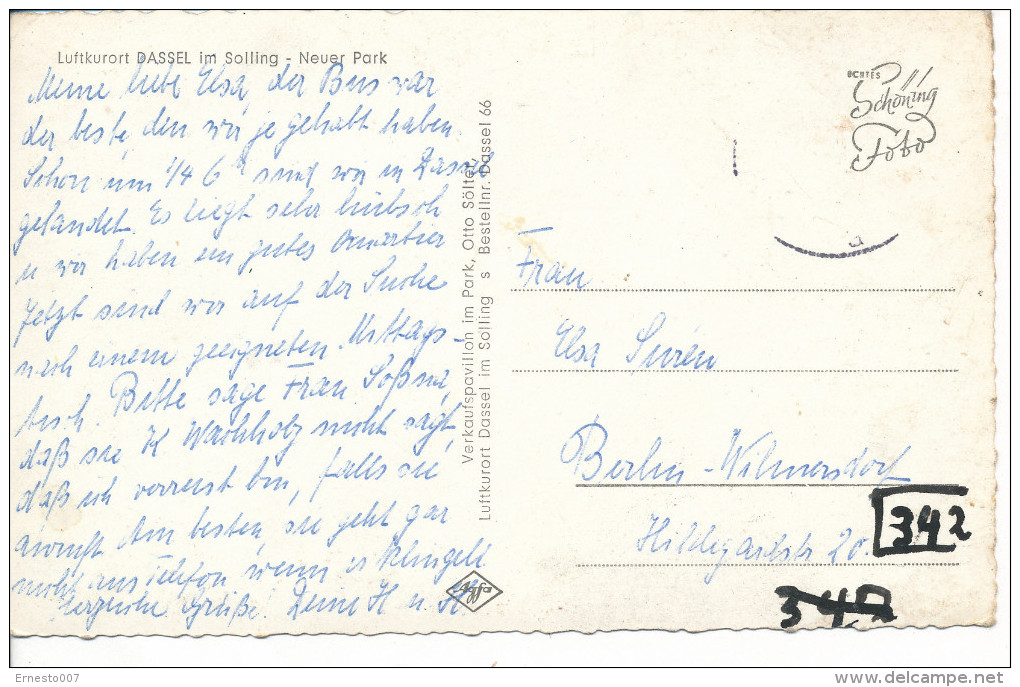 Luftkurort DASSEL im Solling - Neuer Park
Meine liebe Elsa, der Bus war
der beste, den wir je gehabt haben.
Schon um 1/4 6 sind wir in Dassel
gelandet. Es liegt sehr hübsch
u wir haben ein gutes Quartier
Jetzt sind wir auf der Suche
nach einem geeigneten Mittags-
tisch. Bitte sage Frau
daß sie K Wachholz nicht sagt,
daß ich verreist bin, falls sie
anruft Am besten, sie geht gar
nicht ans Telefon, wenn es klingelt
Herzliche Grüße! Deine H u H
Verkaufspavillon im Park, Otto Sölter
Luftkurort Dassel im Solling s Bestellnr. Dassel 66
Agfa
ECHTES
Schöning
Foto
Frau
Elsa Surén
Berlin-Wilmersdorf
342
Hildegardstr 20
342
Ernesto007
delcampe.net